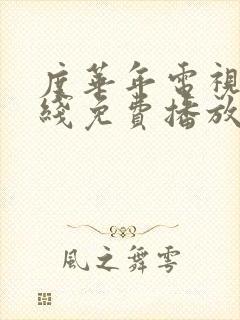 度華年電視
綫免費播放
風之舞雩